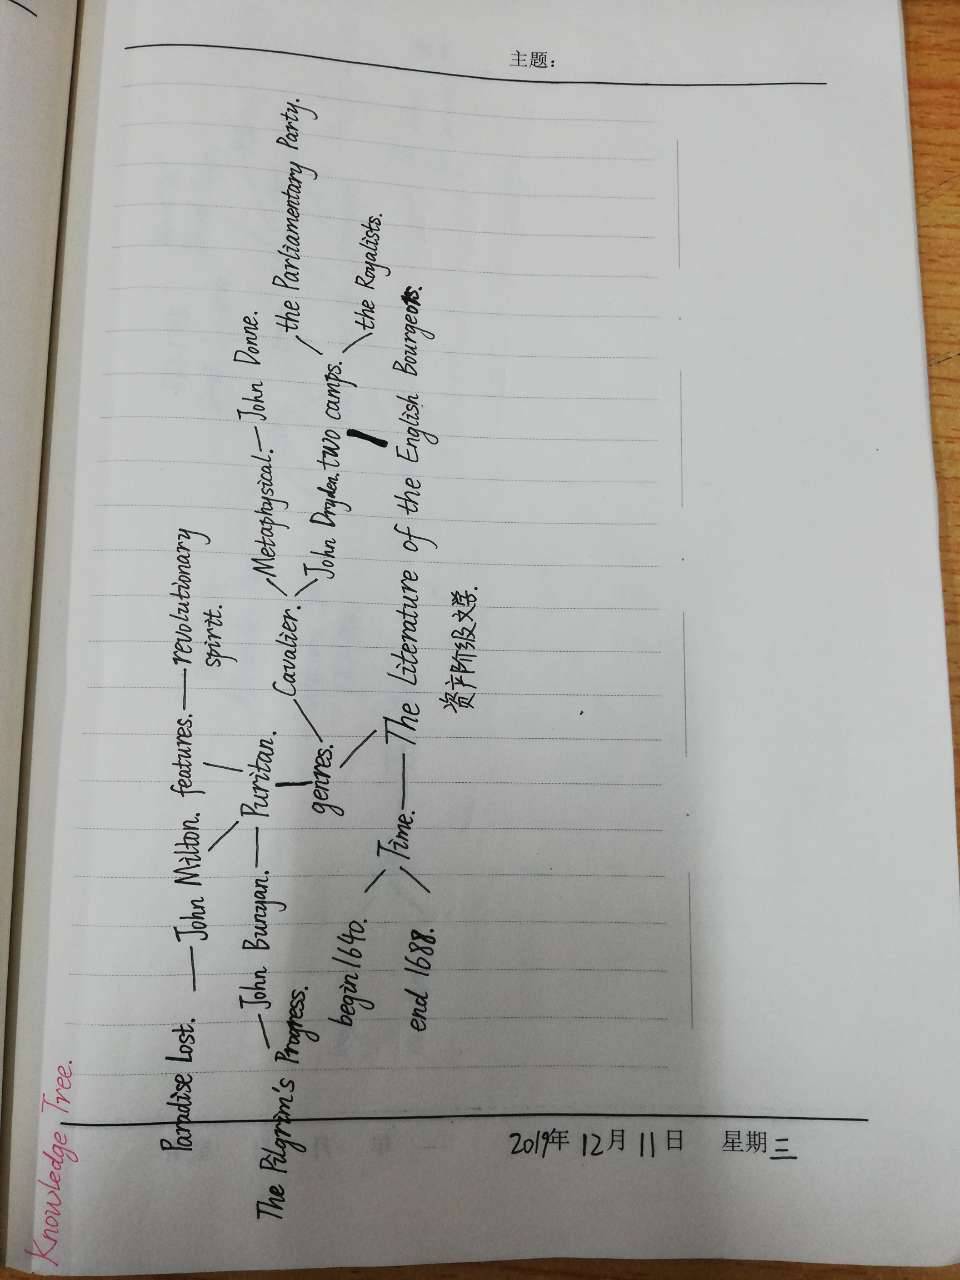 Knowledge Tree.
Paradise Lost. — John Milton. features. — revolutionary
spirit.
The Pilgrim's Progress. — John Bunyan. — Puritan.
Cavalier.
Metaphysical. — John Donne.
John Dryden.
genres.
two camps.
the Parliamentary Party.
the Royalists.
begin 1640.
end 1688.
Time. — The Literature of the English Bourgeois.
资产阶级文学.
主题：
2019年 12月 11日 星期三